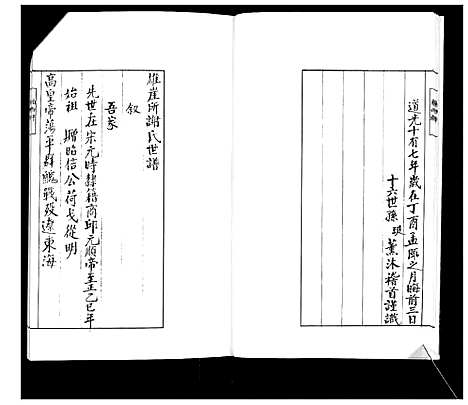 道光十有七年歲在丁酉孟陬之月晦前三日
十六世孫 珽 薰沐稽首謹識
雄崖所謝氏世譜
敘
吾家
先世在宋元時隸籍商邱元順帝至正乙巳年
始祖 贈昭信公荷戈從明
高皇帝蕩平群鯤戰歿遼東海